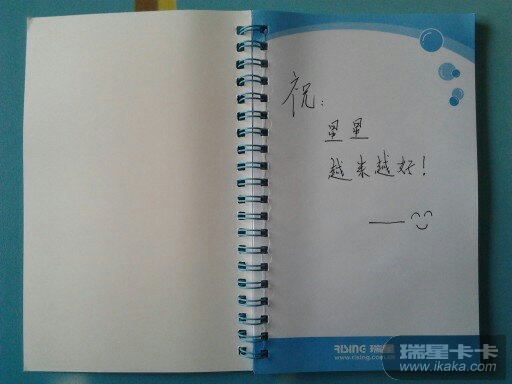 祝：
星星
越来越好！
RISING 瑞星
www.rising.com.cn
瑞星卡卡
www.ikaka.com